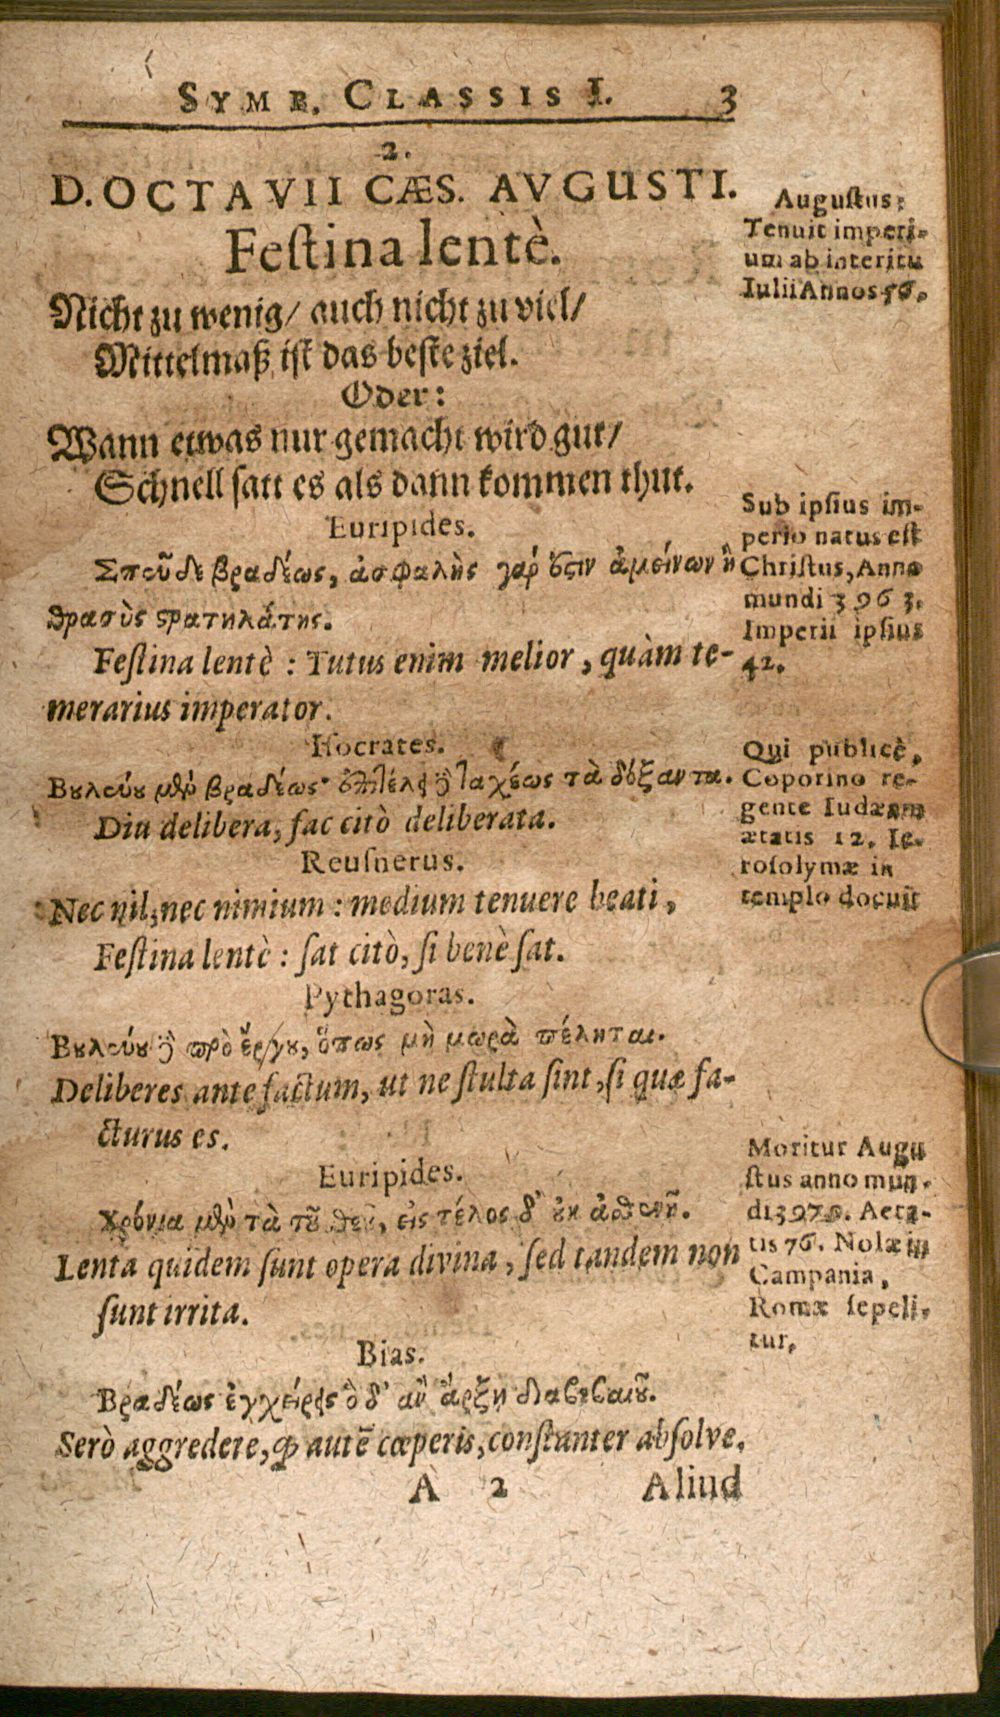 SYMB. CLASSIS I. 3
2.
D. OCTAVII CÆS. AVGUSTI.
Festina lentè.
Nicht zu wenig/ auch nicht zu viel/
Mittelmaß ist das beste ziel.
Oder:
Wann etwas nur gemacht wird gut/
Schnell satt es als dann kommen thut.
Euripides.
Σπεῦδε βραδέως, ἀσφαλὴς γάρ ἐστιν ἀμείνων ἢ
θρασὺς στρατηλάτης.
Festina lentè : Tutus enim melior, quàm te-
merarius imperator.
Isocrates.
Βουλεύου μὲν βραδέως· ἐπιτέλει δὲ ταχέως τὰ δόξαντα.
Diu delibera, fac citò deliberata.
Reusnerus.
Nec nil, nec nimium : medium tenuere beati,
Festina lentè : sat citò, si benè sat.
Pythagoras.
Βουλεύου δὲ πρὸ ἔργου, ὅπως μὴ μωρὰ πέληται.
Deliberes ante factum, ut ne stulta sint, si quæ fa-
cturus es.
Euripides.
χρόνια μὲν τὰ τοῦ θεοῦ, εἰς τέλος δ' οὐκ ἀσθενῆ.
Lenta quidem sunt opera divina, sed tandem non
sunt irrita.
Bias.
Βραδέως ἐγχείρει ὃ δ' ἂν ἄρξῃ διαβεβαιοῦ.
Serò aggredere, qd autē cœperis, constanter absolve.
A 2 Aliud
Augustus:
Tenuit imperi-
um ab interitu
Iulii Annos 56.
Sub ipsius im-
perio natus est
Christus, Anno
mundi 3963.
Imperii ipsius
42.
Qui publicè,
Coporino re-
gente Iudæam
ætatis 12. Ie-
rosolymæ in
templo docuit
Moritur Augu
stus anno mun-
di Aeta-
tis 76. Nolæ in
Campania,
Romæ sepeli-
tur.